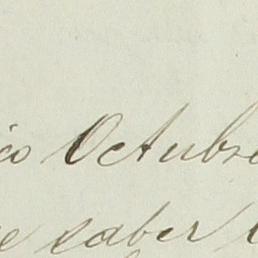 co Octubre
e saber